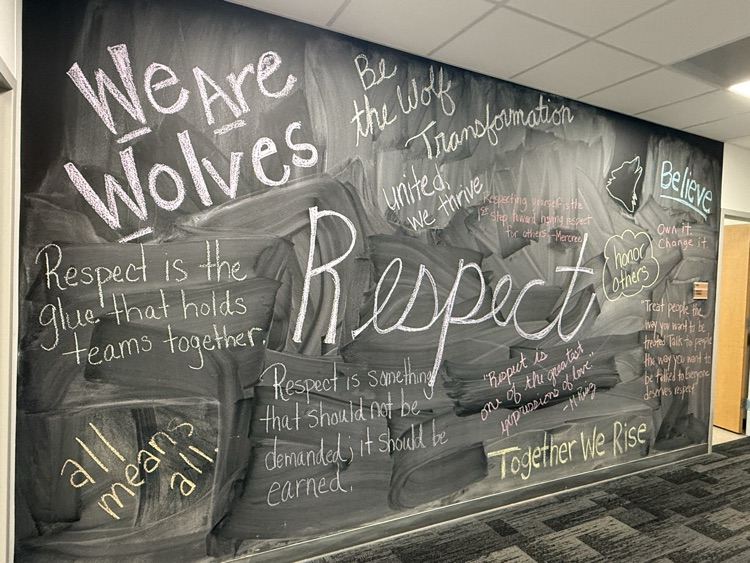 We Are
Wolves
Be
the Wolf
Transformation
united,
we thrive
Respecting yourself is the
1st step toward gaining respect
for others. -Mercree
Believe
Own it.
Change it.
honor
others
Respect
Respect is the
glue that holds
teams together.
Respect is something
that should not be
demanded; it should be
earned.
"Respect is
one of the greatest
expressions of love."
Treat people the
way you want to be
treated. Talk to people
the way you want to
be talked to. Everyone
deserves respect
all
means
all.
Together We Rise